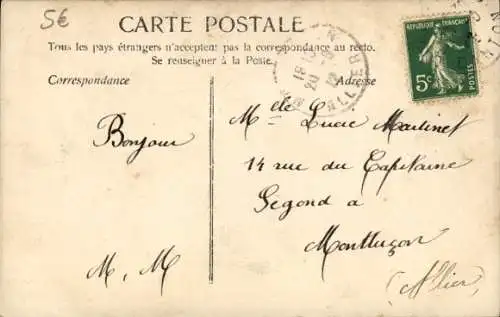 5€
CARTE POSTALE
Tous les pays étrangers n'acceptent pas la correspondance au recto.
Se renseigner à la Poste.
Correspondance
Adresse
RÉPUBLIQUE FRANÇAISE
5c
POSTES
ALLIER
Bonjour
M. M
Melle Lucie Martinet
14 rue du Capitaine
Segond à
Montluçon
(Allier)